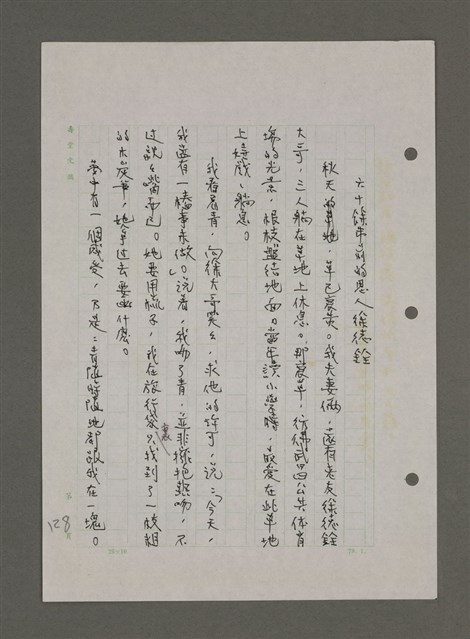 六十餘年前的恩人徐德銓
秋天的草地，草已度黃。我夫妻倆，還有老友徐德銓
大哥，三人躺在草地上休息。那度草，彷彿武昌公共体育
場的光景，根枝盤結地面。當年讀小學時，最愛在此草地
上嬉戲、躺息。
我看看青，向徐大哥笑笑，求他的許可，說：「今天，
我還有一樁事未做。」說着，我吻了青，並非擁抱熱吻，不
过說是嘴而已。她要用梳子，我在旅行袋裏只找到了一枝粗
的木炭筆，她拿过去要畫什麼。
夢中有一個感受，乃是：青隨時隨地都跟我在一塊。
128